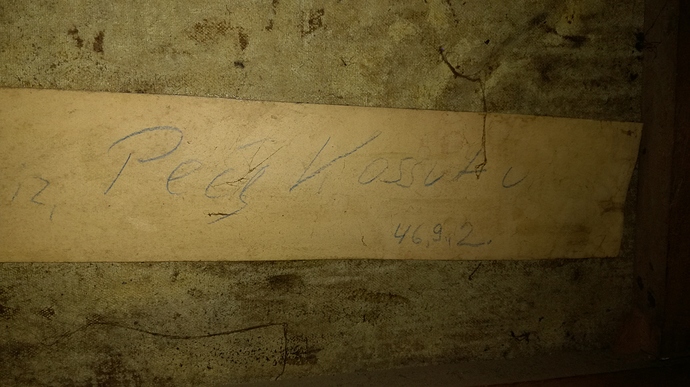 12, Pécs Kossuth u
46.9.2.